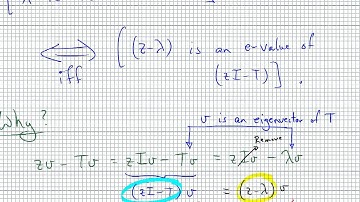 ⟺ [(z-λ) is an e-value of
iff (zI-T)].
Why?
v is an eigenvector of T
Remove
zv - Tv = zIv - Tv = zIv - λv
(zI-T) v = (z-λ) v